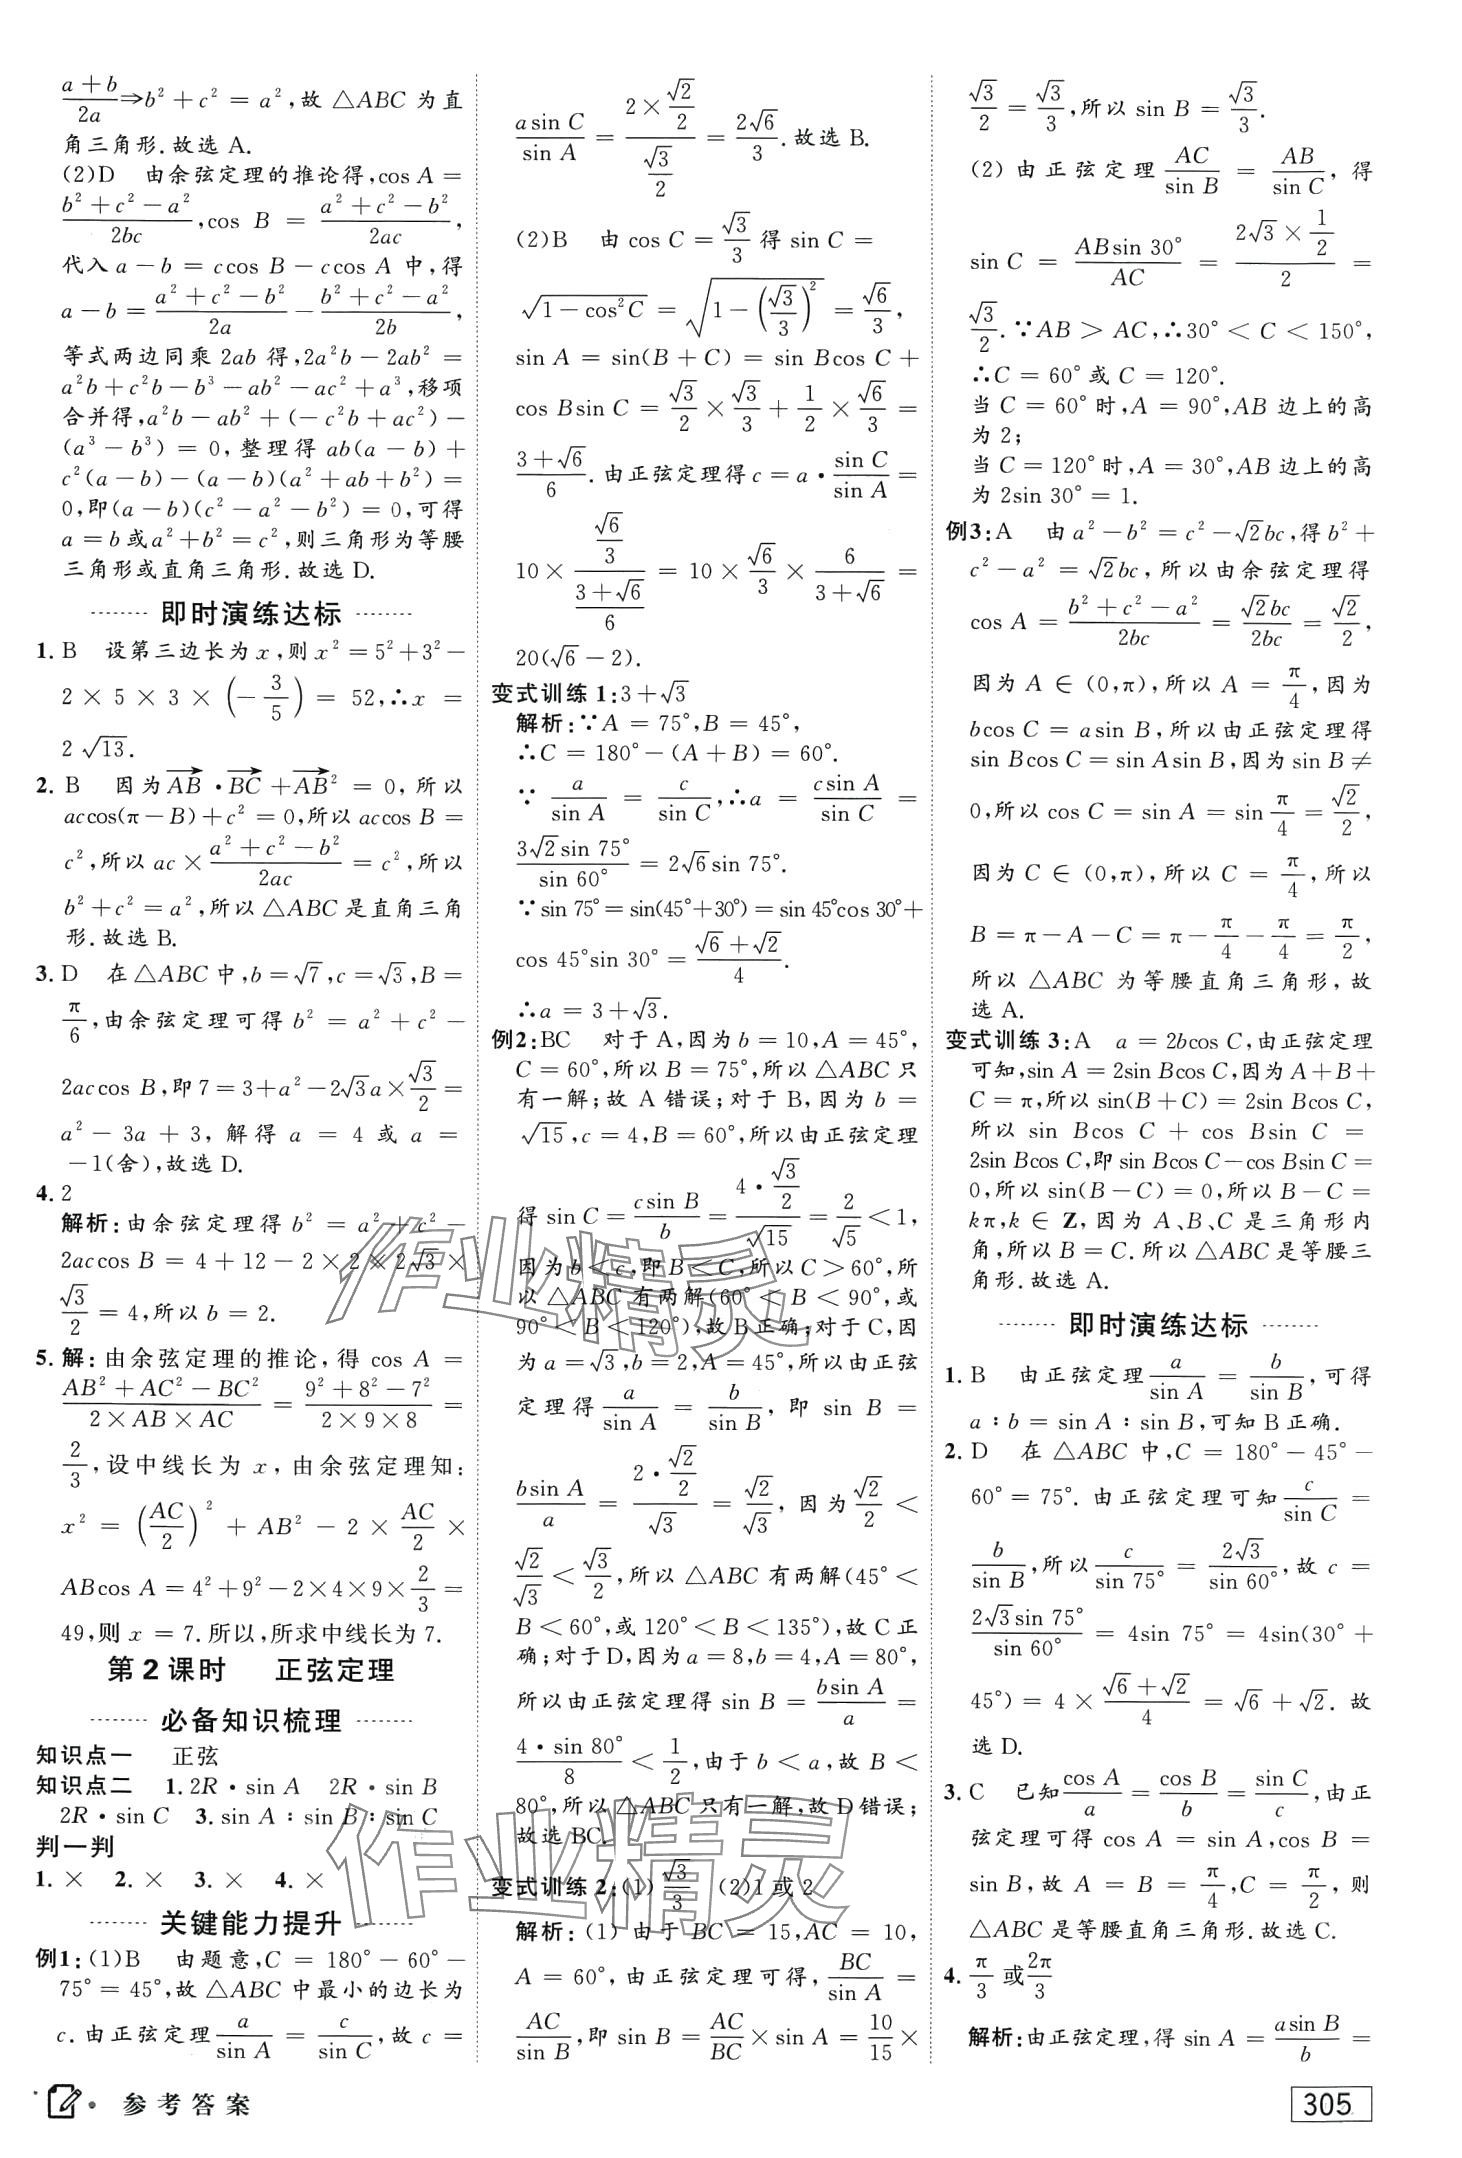 (a+b)/(2a)⇒b²+c²=a²,故△ABC为直
角三角形.故选A.
(2)D 由余弦定理的推论得,cos A=
(b²+c²-a²)/(2bc),cos B=(a²+c²-b²)/(2ac),
代入a-b=ccos B-ccos A中,得
a-b=(a²+c²-b²)/(2a)-(b²+c²-a²)/(2b),
等式两边同乘2ab得,2a²b-2ab²=
a²b+c²b-b³-ab²-ac²+a³,移项
合并得,a²b-ab²+(-c²b+ac²)-
(a³-b³)=0,整理得ab(a-b)+
c²(a-b)-(a-b)(a²+ab+b²)=
0,即(a-b)(c²-a²-b²)=0,可得
a=b或a²+b²=c²,则三角形为等腰
三角形或直角三角形.故选D.
即时演练达标
1. B 设第三边长为x,则x²=5²+3²-
2×5×3×(-3/5)=52,∴x=
2√13.
2. B 因为AB→·BC→+AB→²=0,所以
accos(π-B)+c²=0,所以accos B=
c²,所以ac×(a²+c²-b²)/(2ac)=c²,所以
b²+c²=a²,所以△ABC是直角三角
形.故选B.
3. D 在△ABC中,b=√7,c=√3,B=
π/6,由余弦定理可得b²=a²+c²-
2accos B,即7=3+a²-2√3a×√3/2=
a²-3a+3,解得a=4或a=
-1(舍),故选D.
4. 2
解析:由余弦定理得b²=a²+c²-
2accos B=4+12-2×2×2√3×
√3/2=4,所以b=2.
5. 解:由余弦定理的推论,得cos A=
(AB²+AC²-BC²)/(2×AB×AC)=(9²+8²-7²)/(2×9×8)=
2/3,设中线长为x,由余弦定理知:
x²=(AC/2)²+AB²-2×AC/2×
ABcos A=4²+9²-2×4×9×2/3=
49,则x=7.所以,所求中线长为7.
第2课时 正弦定理
必备知识梳理
知识点一 正弦
知识点二 1. 2R·sin A 2R·sin B
2R·sin C 3. sin A∶sin B∶sin C
判一判
1. × 2. × 3. × 4. ×
关键能力提升
例1:(1)B 由题意,C=180°-60°-
75°=45°,故△ABC中最小的边长为
c.由正弦定理a/sin A=c/sin C,故c=
asin C/sin A=(2×√2/2)/(√3/2)=2√6/3.故选B.
(2)B 由cos C=√3/3得sin C=
√(1-cos²C)=√(1-(√3/3)²)=√6/3,
sin A=sin(B+C)=sin Bcos C+
cos Bsin C=√3/2×√3/3+1/2×√6/3=
(3+√6)/6.由正弦定理得c=a·sin C/sin A=
10×(√6/3)/((3+√6)/6)=10×√6/3×6/(3+√6)=
20(√6-2).
变式训练1:3+√3
解析:∵A=75°,B=45°,
∴C=180°-(A+B)=60°.
∵a/sin A=c/sin C,∴a=csin A/sin C=
3√2sin 75°/sin 60°=2√6sin 75°.
∵sin 75°=sin(45°+30°)=sin 45°cos 30°+
cos 45°sin 30°=(√6+√2)/4.
∴a=3+√3.
例2:BC 对于A,因为b=10,A=45°,
C=60°,所以B=75°,所以△ABC只
有一解;故A错误;对于B,因为b=
√15,c=4,B=60°,所以由正弦定理
得sin C=csin B/b=(4·√3/2)/√15=2/√5<1,
因为b<c,即B<C,所以C>60°,所
以△ABC有两解(60°<B<90°,或
90°<B<120°),故B正确;对于C,因
为a=√3,b=2,A=45°,所以由正弦
定理得a/sin A=b/sin B,即sin B=
bsin A/a=(2·√2/2)/√3=√2/√3,因为√2/2<
√2/√3<√3/2,所以△ABC有两解(45°<
B<60°,或120°<B<135°),故C正
确;对于D,因为a=8,b=4,A=80°,
所以由正弦定理得sin B=bsin A/a=
4·sin 80°/8<1/2,由于b<a,故B<
80°,所以△ABC只有一解,故D错误;
故选BC.
变式训练2:(1)√3/3 (2)1或2
解析:(1)由于BC=15,AC=10,
A=60°,由正弦定理可得,BC/sin A=
AC/sin B,即sin B=AC/BC×sin A=10/15×
√3/2=√3/3,所以sin B=√3/3.
(2)由正弦定理AC/sin B=AB/sin C,得
sin C=ABsin 30°/AC=(2√3×1/2)/2=
√3/2.∵AB>AC,∴30°<C<150°,
∴C=60°或C=120°.
当C=60°时,A=90°,AB边上的高
为2;
当C=120°时,A=30°,AB边上的高
为2sin 30°=1.
例3:A 由a²-b²=c²-√2bc,得b²+
c²-a²=√2bc,所以由余弦定理得
cos A=(b²+c²-a²)/(2bc)=√2bc/(2bc)=√2/2,
因为A∈(0,π),所以A=π/4,因为
bcos C=asin B,所以由正弦定理得
sin Bcos C=sin Asin B,因为sin B≠
0,所以cos C=sin A=sin π/4=√2/2,
因为C∈(0,π),所以C=π/4,所以
B=π-A-C=π-π/4-π/4=π/2,
所以△ABC为等腰直角三角形,故
选A.
变式训练3:A a=2bcos C,由正弦定理
可知,sin A=2sin Bcos C,因为A+B+
C=π,所以sin(B+C)=2sin Bcos C,
所以sin Bcos C+cos Bsin C=
2sin Bcos C,即sin Bcos C-cos Bsin C=
0,所以sin(B-C)=0,所以B-C=
kπ,k∈Z,因为A、B、C是三角形内
角,所以B=C.所以△ABC是等腰三
角形.故选A.
即时演练达标
1. B 由正弦定理a/sin A=b/sin B,可得
a∶b=sin A∶sin B,可知B正确.
2. D 在△ABC中,C=180°-45°-
60°=75°.由正弦定理可知c/sin C=
b/sin B,所以c/sin 75°=2√3/sin 60°,故c=
2√3sin 75°/sin 60°=4sin 75°=4sin(30°+
45°)=4×(√6+√2)/4=√6+√2.故
选D.
3. C 已知cos A/a=cos B/b=sin C/c,由正
弦定理可得cos A=sin A,cos B=
sin B,故A=B=π/4,C=π/2,则
△ABC是等腰直角三角形.故选C.
4. π/3或2π/3
解析:由正弦定理,得sin A=asin B/b=
作业精灵
作业精灵
参考答案
305